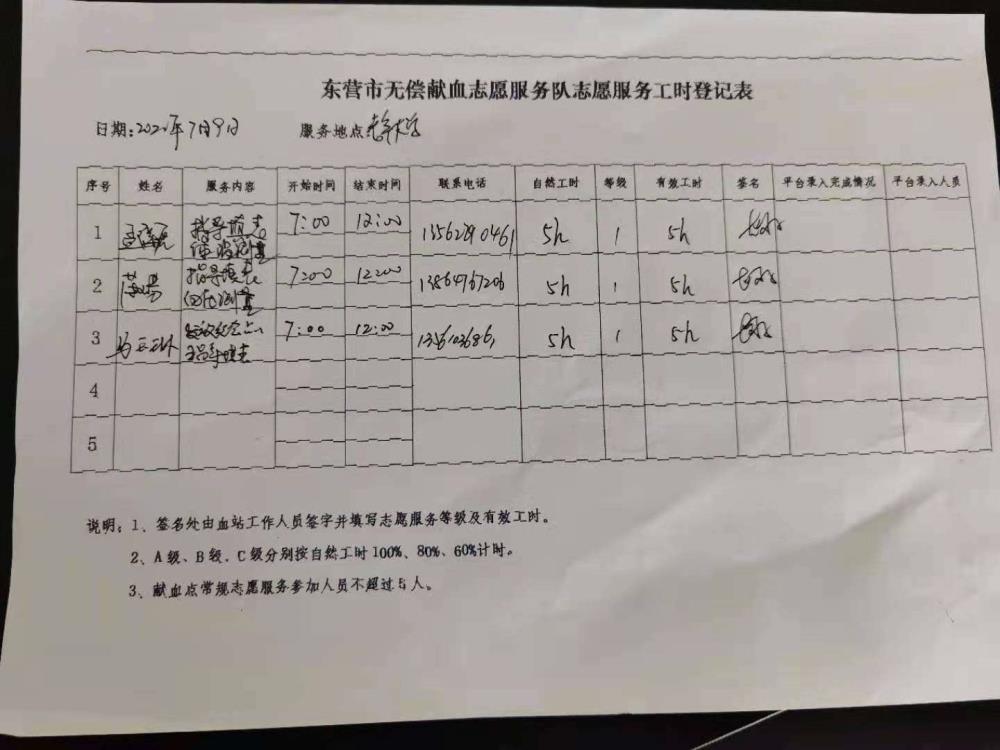 东营市无偿献血志愿服务队志愿服务工时登记表
日期:2020年7月9日 服务地点
序号 姓名 服务内容 开始时间 结束时间 联系电话 自然工时 等级 有效工时 签名 平台录入完成情况 平台录入人员
1 指导填表 7:00 12:00 13562890461 5h 1 5h
2 指导填表 7:00 12:00 13864767206 5h 1 5h
3 7:00 12:00 5h 1 5h
4
5
说明：1、签名处由血站工作人员签字并填写志愿服务等级及有效工时。
2、A级、B级、C级分别按自然工时100%、80%、60%计时。
3、献血点常规志愿服务参加人员不超过5人。